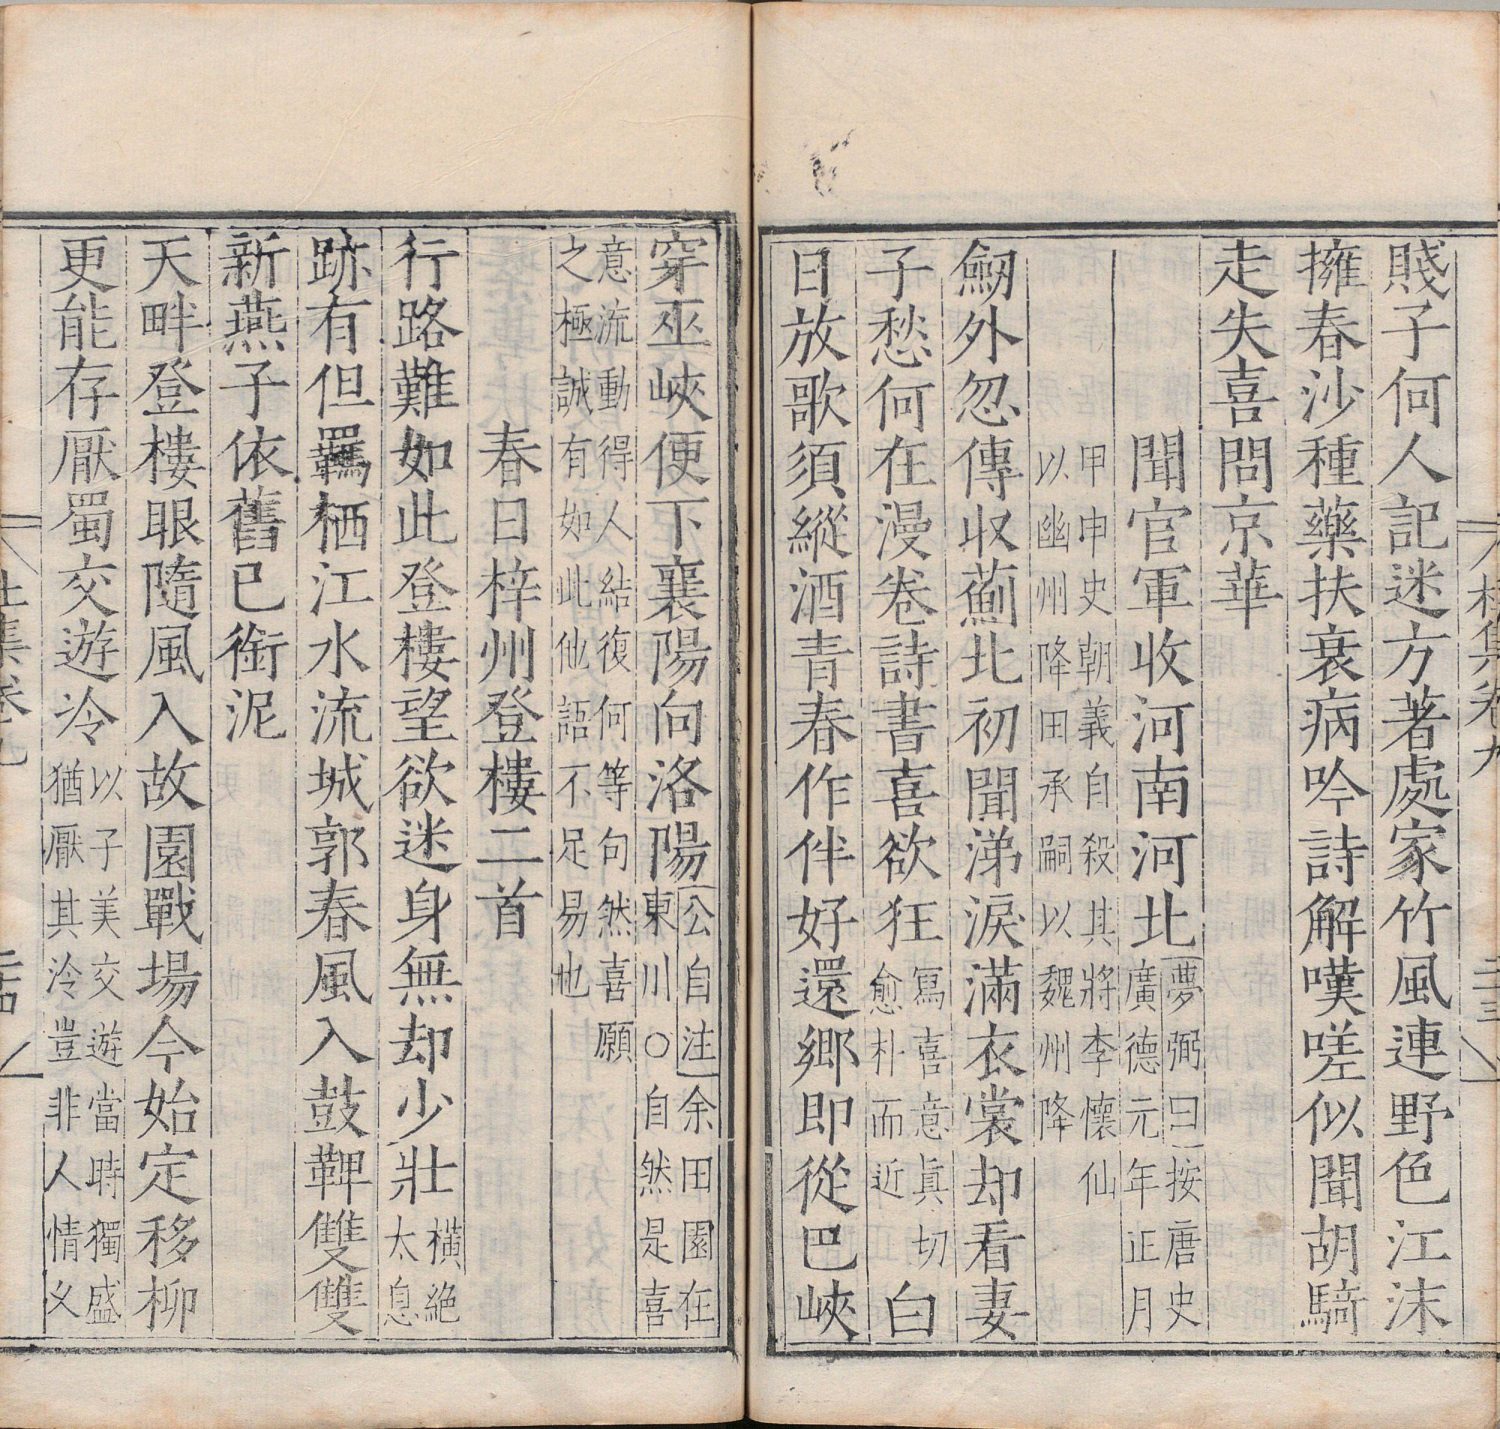 杜集卷九
二十三
賤子何人記迷方著處家竹風連野色江沫
擁春沙種藥扶衰病吟詩解嘆嗟似聞胡騎
走失喜問京華
聞官軍收河南河北
夢弼曰按唐史
廣德元年正月
甲申史朝義自殺其將李懷仙
以幽州降田承嗣以魏州降
劒外忽傳收薊北初聞涕淚滿衣裳却看妻
子愁何在漫卷詩書喜欲狂
寫喜意真切
愈朴而近
白
日放歌須縱酒青春作伴好還鄉即從巴峽
穿巫峽便下襄陽向洛陽
公自注余田園在
東川○自然是喜
意流動得人結復何等句然喜願
之極誠有如此他語不足易也
春日梓州登樓二首
行路難如此登樓望欲迷身無却少壯
橫絶
太息
跡有但羈栖江水流城郭春風入鼓鞞雙雙
新燕子依舊已銜泥
天畔登樓眼隨風入故園戰場今始定移柳
更能存厭蜀交遊冷
以子美交遊當時獨盛
猶厭其冷豈非人情义
杜集卷九
二十四